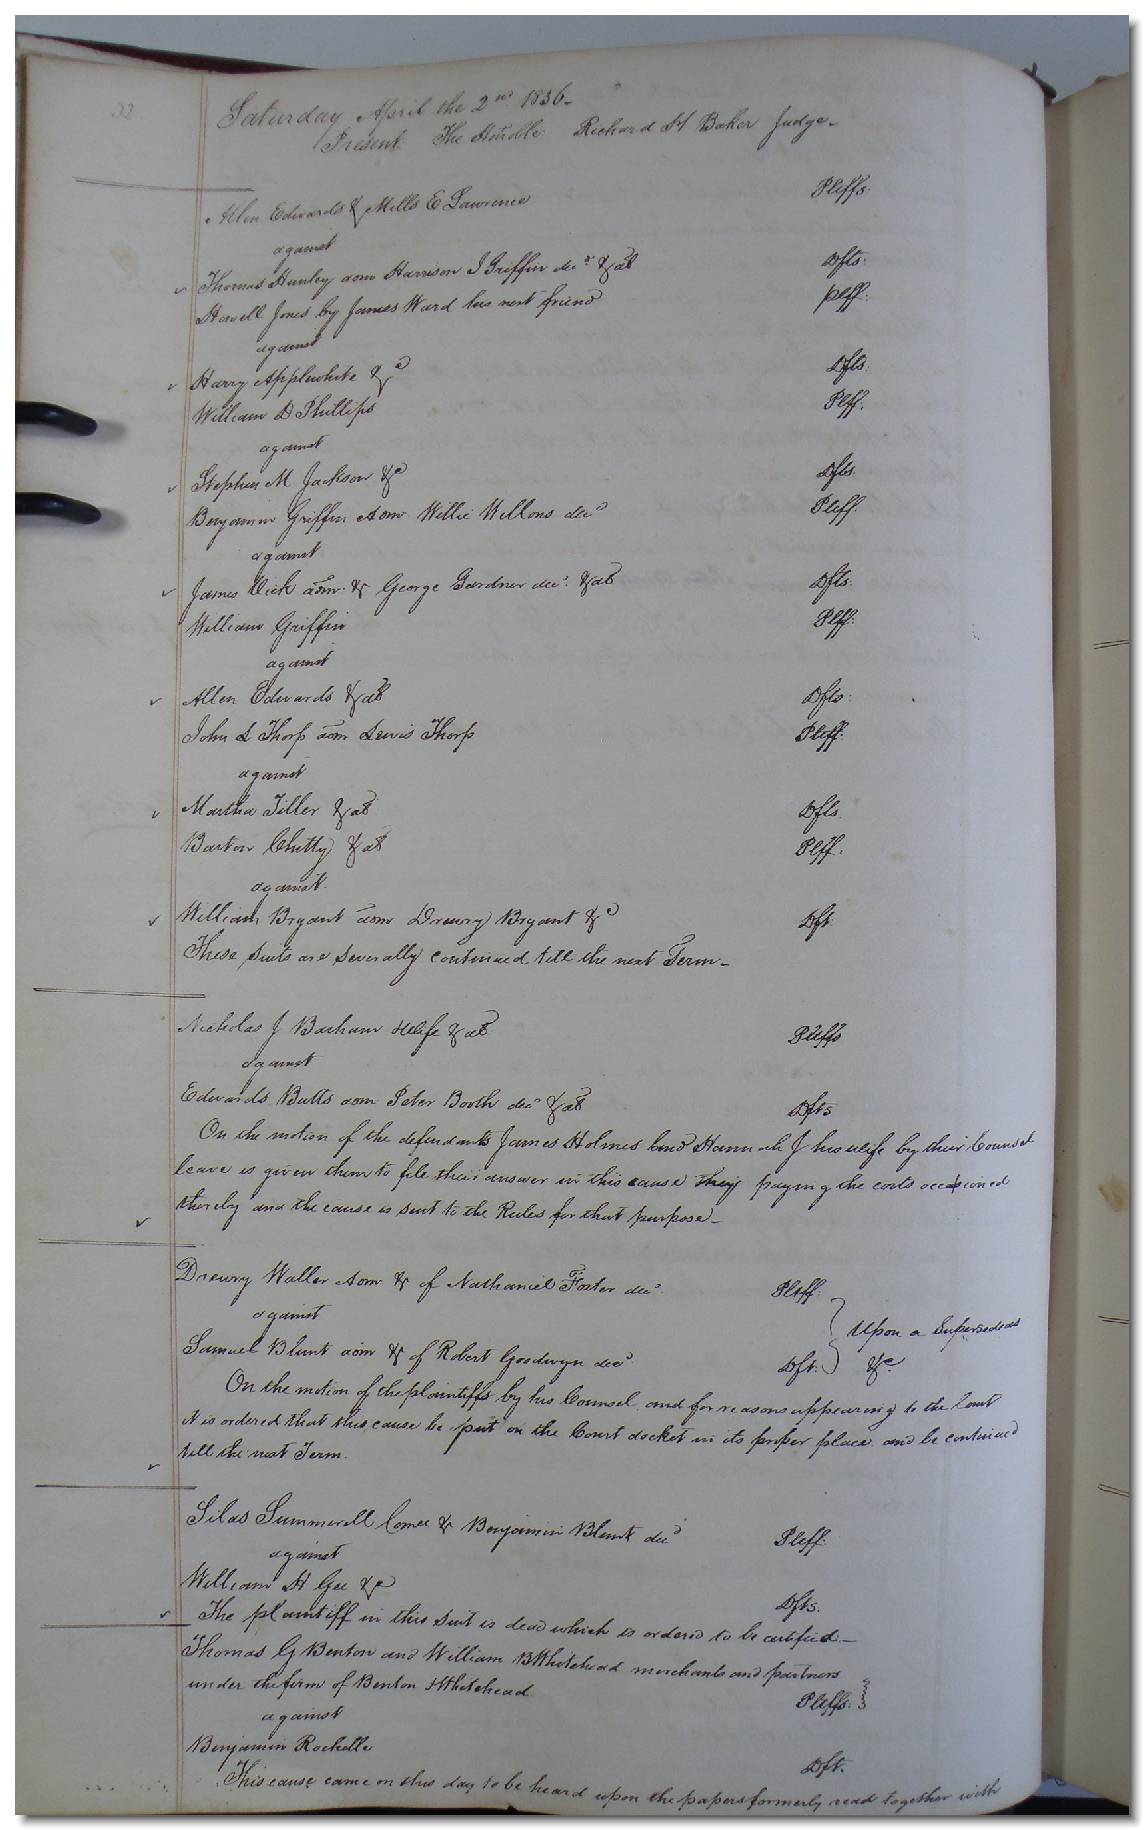 32
Saturday April the 2nd 1836-
Present The Honble Richard H Baker Judge-
Allen Edwards & Mills E Lawrence Pleffs.
against
Thomas Hunley adm Harrison J Griffin decd & als Dfts.
Howell Jones by James Ward his next friend pleff.
against
Harry Applewhite &c Dfts.
William D Phillips Plff.
against
Stephen M Jackson &c Dfts.
Benjamin Griffin Admr Willie Wellons decd Pleff.
against
James adm. & George Gardner decd. & als Dfts.
William Griffin Plff.
against
Allen Edwards & als Dfts.
John L Thorp adm Lewis Thorp Pleff.
against
Martha Tiller & als Dfts.
Barton Chitty & als Plff.
against.
William Bryant adm Drewry Bryant &c Dft.
These suits are severally continued till the next Term-
Nicholas J Barham & Wife & als Plffs
against
Edwards Butts adm Peter Booth decd & als Dfts
On the motion of the defendants James Holmes and Hannah J his wife by their Counsel
leave is given them to file their answer in this cause they paying the costs occasioned
thereby and the cause is sent to the Rules for that purpose-
Drewry Waller Adm & of Nathaniel Foster decd. Pleff.
against Upon a Supersedeas
Samuel Blunt adm & of Robert Goodwyn decd Dft. &c.
On the motion of the plaintiffs by his Counsel and for reasons appearing to the Court
it is ordered that this cause be put on the Court docket in its proper place and be continued
till the next Term.
Silas Summerell Comee & Benjamin Blunt decd Pleff.
against
William H Gee &c Dfts.
The plaintiff in this suit is dead which is ordered to be certified-
Thomas G Benton and William B Whitehead merchants and partners
under the firm of Benton & Whitehead Pleffs.
against
Benjamin Rochelle Dft.
This cause came on this day to be heard upon the papers formerly read together with